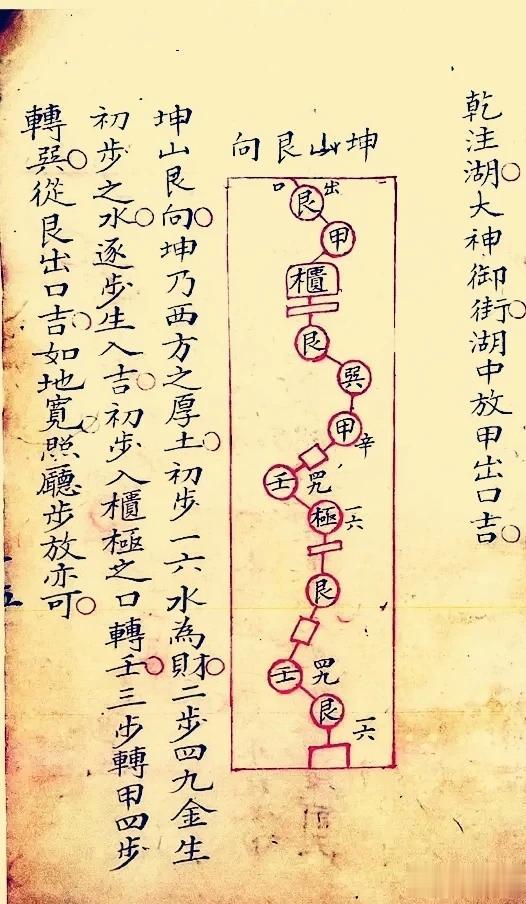 乾注湖大神御街湖中放甲出口吉
坤山艮向
出
口
艮
甲
櫃
艮
巽
甲
辛
壬
四九
極
一六
艮
壬
四九
艮
一六
坤山艮向坤乃西方之厚土初步一六水為財二步四九金生
初步之水逐步生入吉初步入櫃極之口轉壬三步轉甲四步
轉巽從艮出口吉如地寬照廳步放亦可